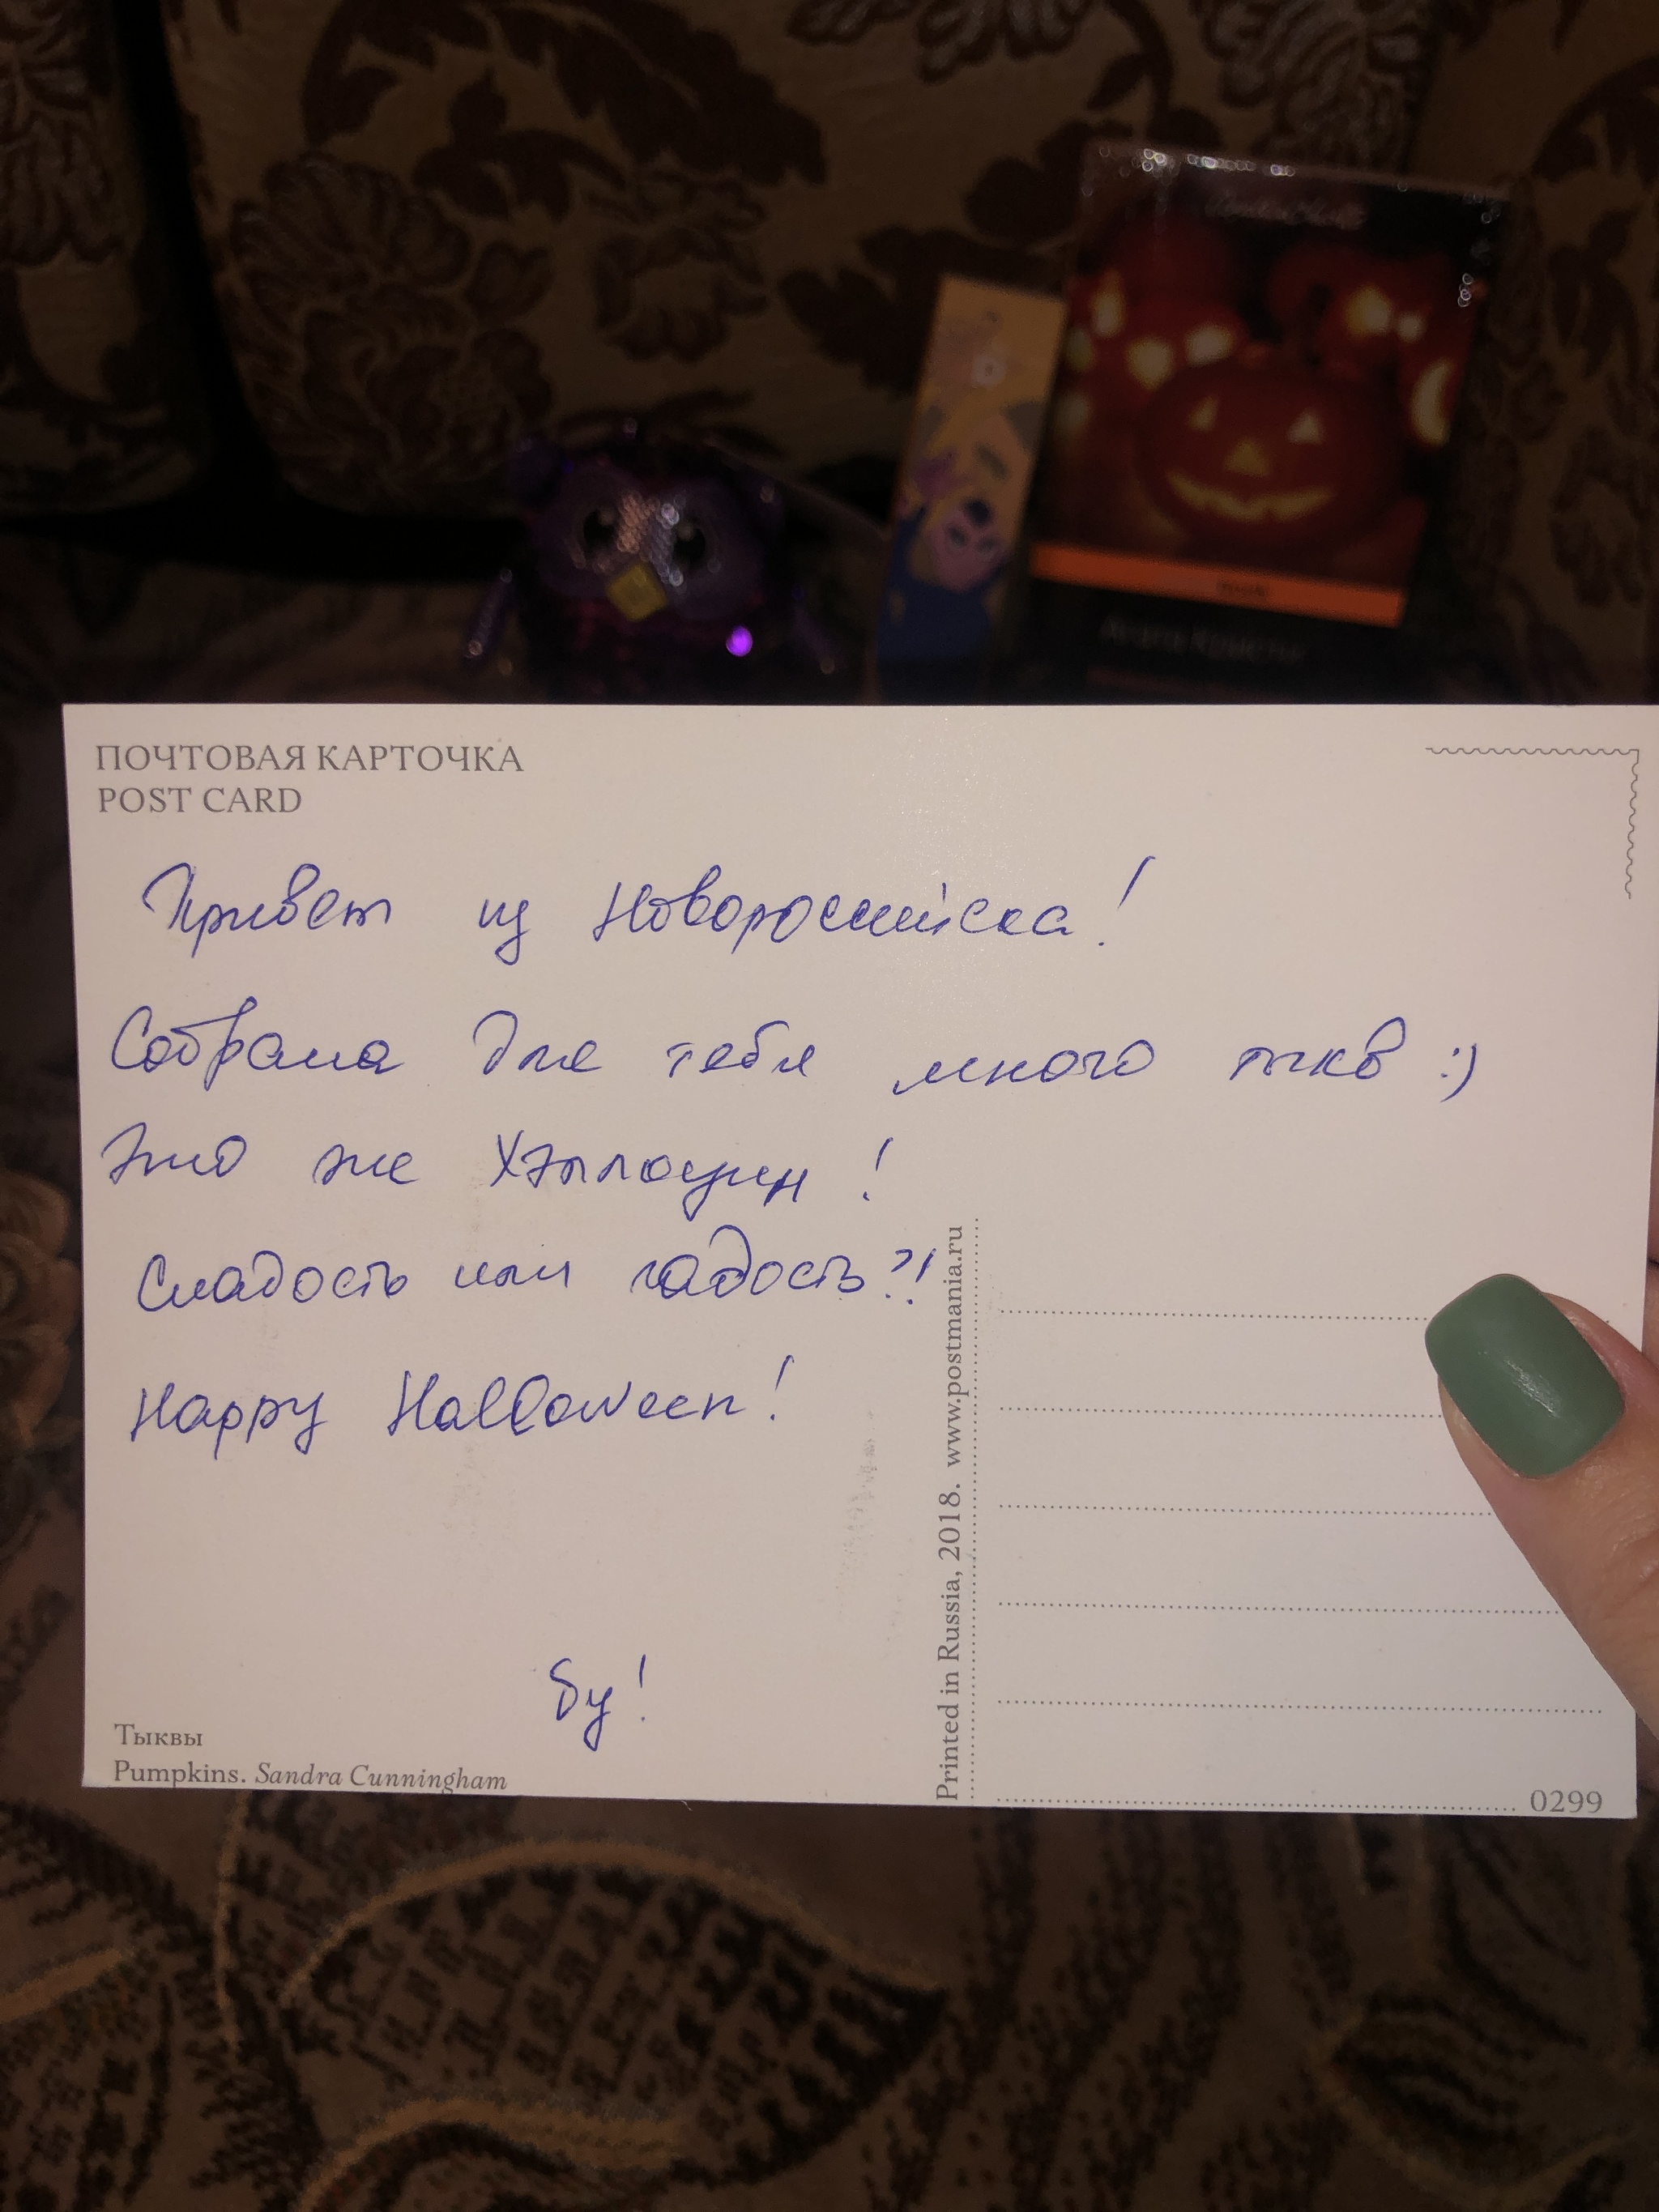 Агата Кристи
ПОЧТОВАЯ КАРТОЧКА
POST CARD
Привет из Новороссийска!
Собрала для тебя много ткв :)
Это же Хэллоуин!
Сладость или гадость?!
Happy Halloween!
Бу!
Тыквы
Pumpkins. Sandra Cunningham
Printed in Russia, 2018. www.postmania.ru
0299